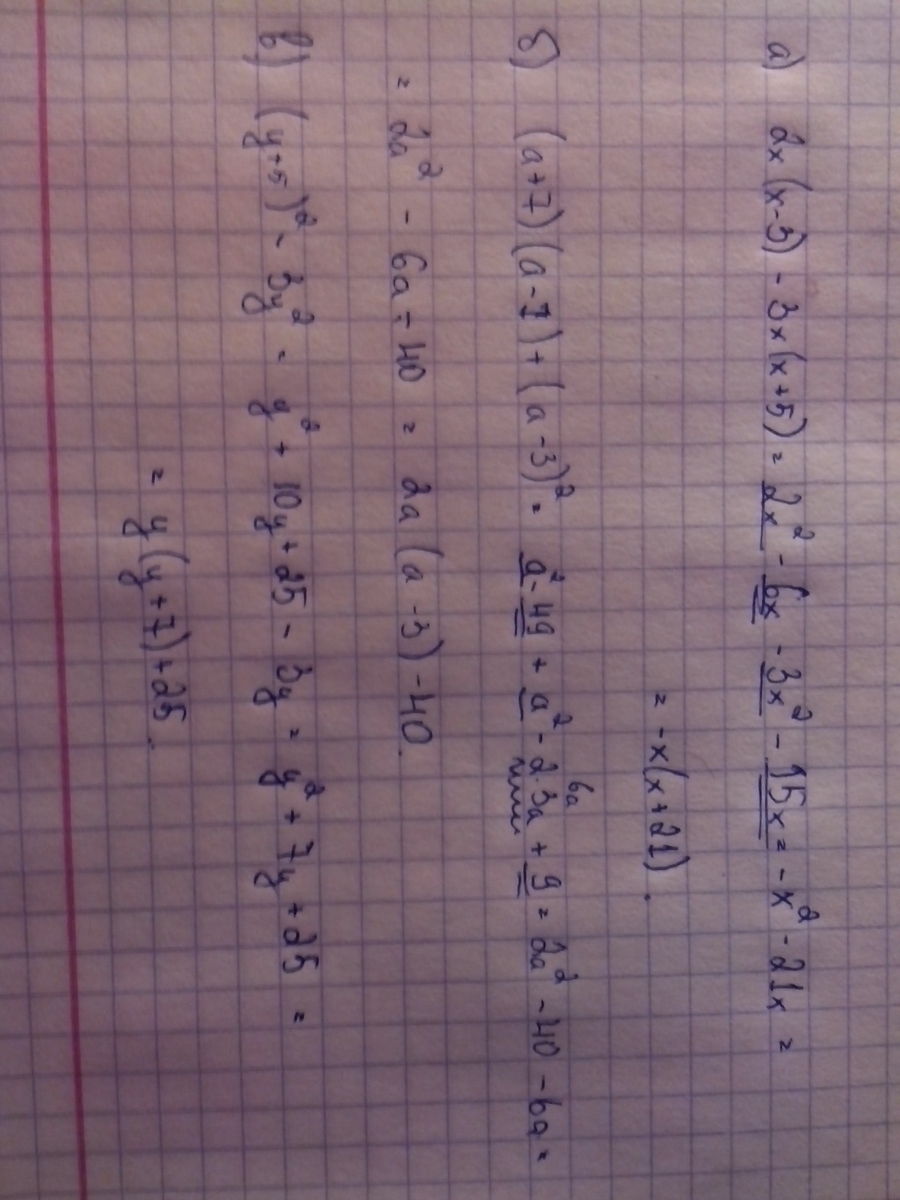 а) 2x(x-3) - 3x(x+5) = 2x² - 6x - 3x² - 15x = -x² - 21x =
= -x(x+21).
б) (a+7)(a-7) + (a-3)² = a² - 49 + a² - 2·3a + 9 = 2a² - 40 - 6a =
6a
= 2a² - 6a - 40 = 2a(a-3) - 40.
в) (y+5)² - 3y² = y² + 10y + 25 - 3y = y² + 7y + 25 =
= y(y+7) + 25.